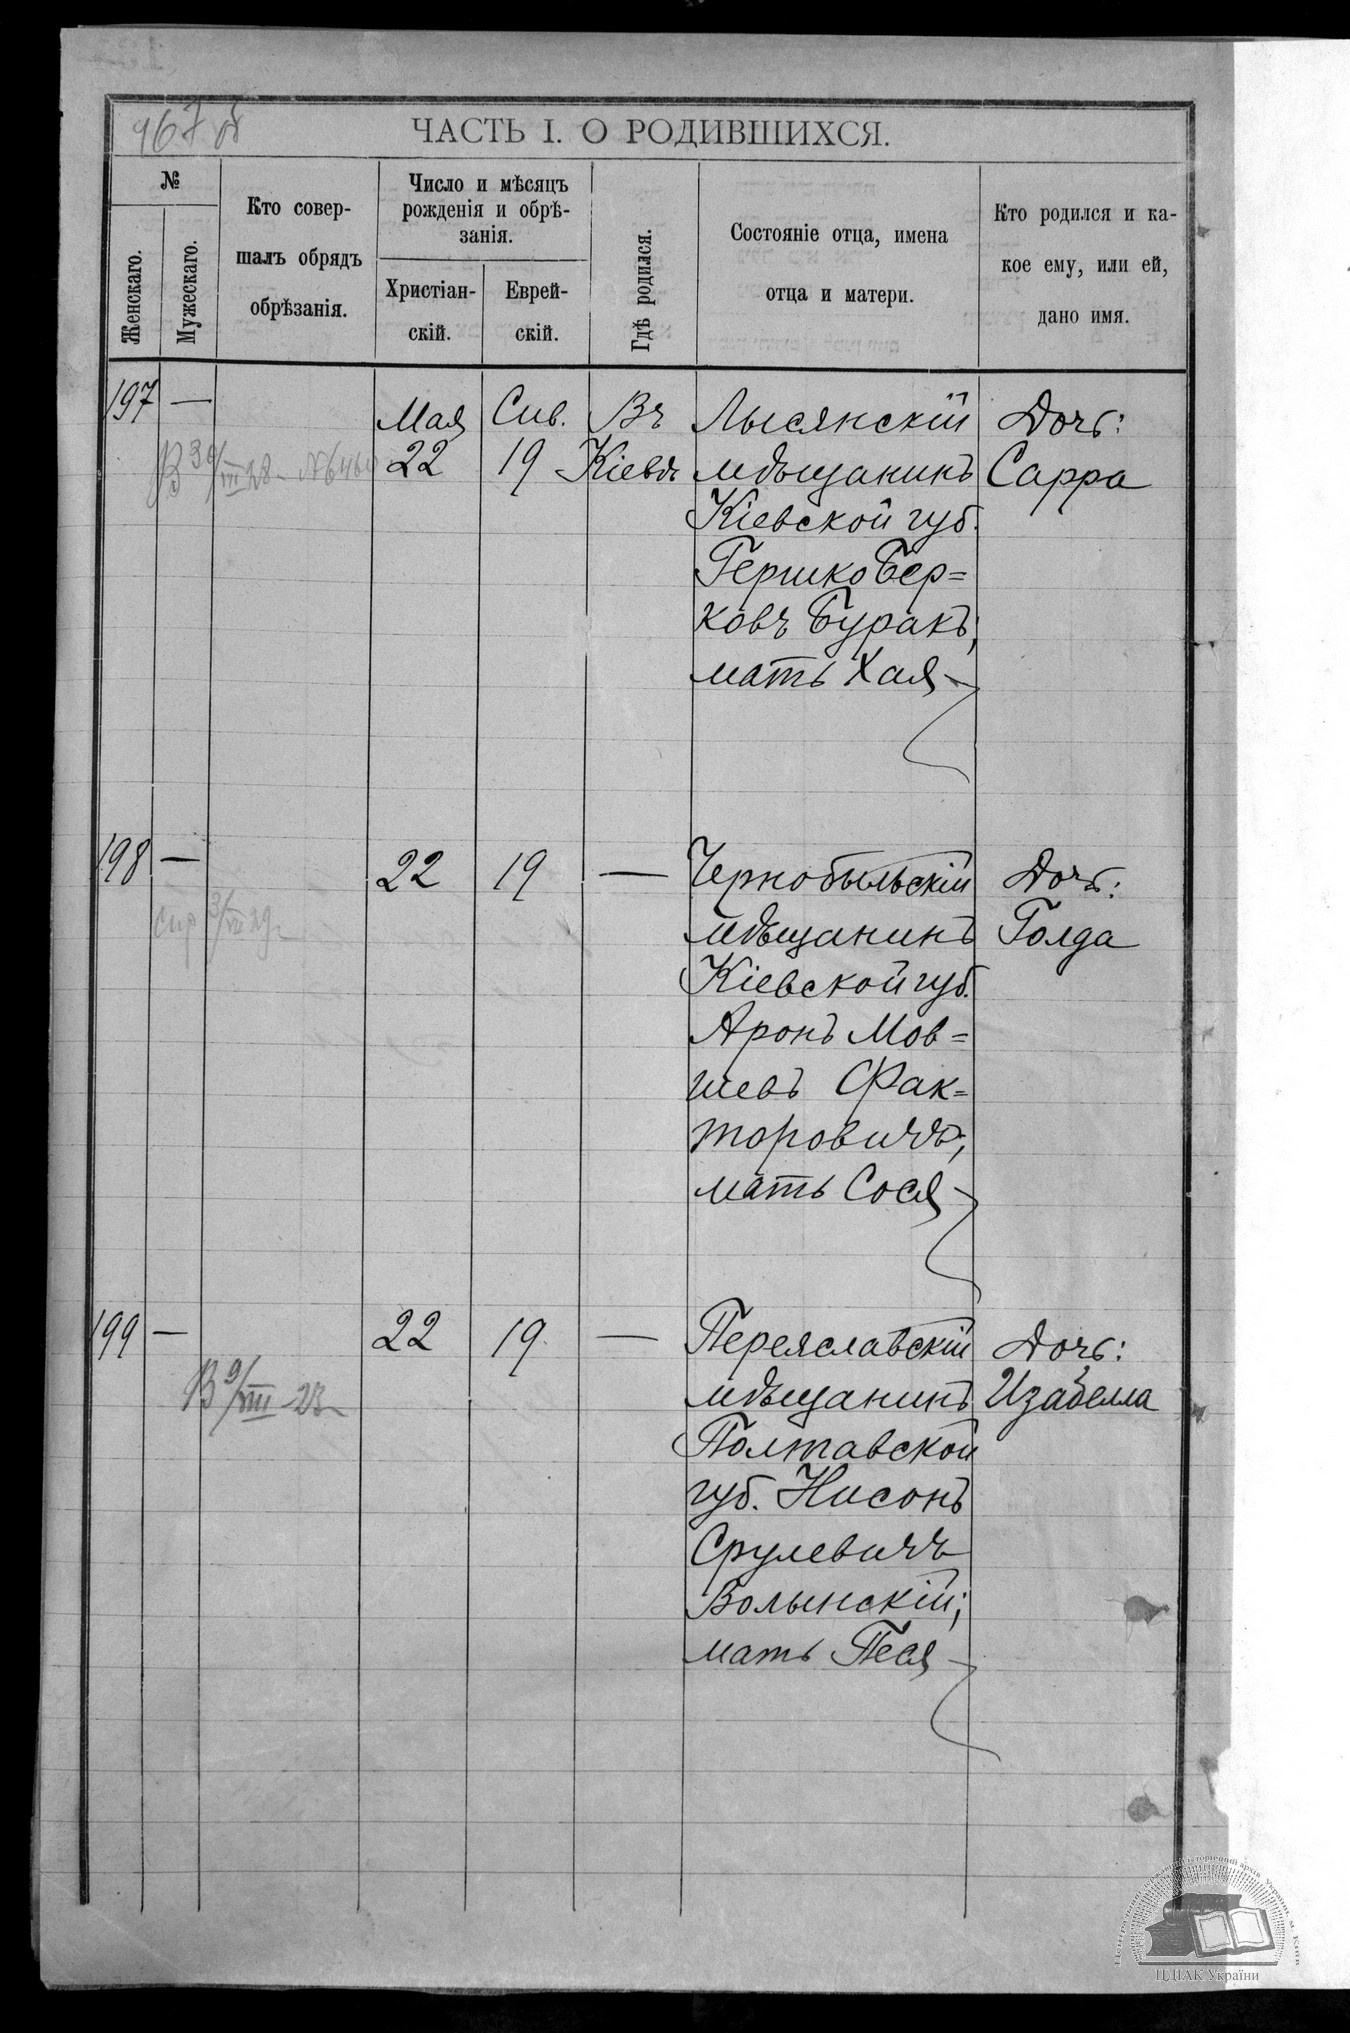 967 об
ЧАСТЬ I. О РОДИВШИХСЯ.
№
Женскаго.
Мужескаго.
Кто совер-
шалъ обрядъ
обрѣзанія.
Число и мѣсяцъ
рожденія и обрѣ-
занія.
Христіан-
скій.
Еврей-
скій.
Гдѣ родился.
Состояніе отца, имена
отца и матери.
Кто родился и ка-
кое ему, или ей,
дано имя.
197 —
Мая
22
Сив.
19
Въ
Кіевѣ
Лысянскій
мѣщанинъ
Кіевской губ.
Гершко Бер=
ковъ Буракъ;
мать Хая
Дочь:
Сарра
198 —
22
19
—
Чернобыльскій
мѣщанинъ
Кіевской губ.
Аронъ Мов=
шевъ Фак=
торовичъ;
мать Сося
Дочь:
Голда
199 —
В 9/VIII 23
22
19
—
Переяславскій
мѣщанинъ
Полтавской
губ. Нисонъ
Срулевичъ
Волынскій;
мать Песя
Дочь:
Изабелла
ЦДІАК України